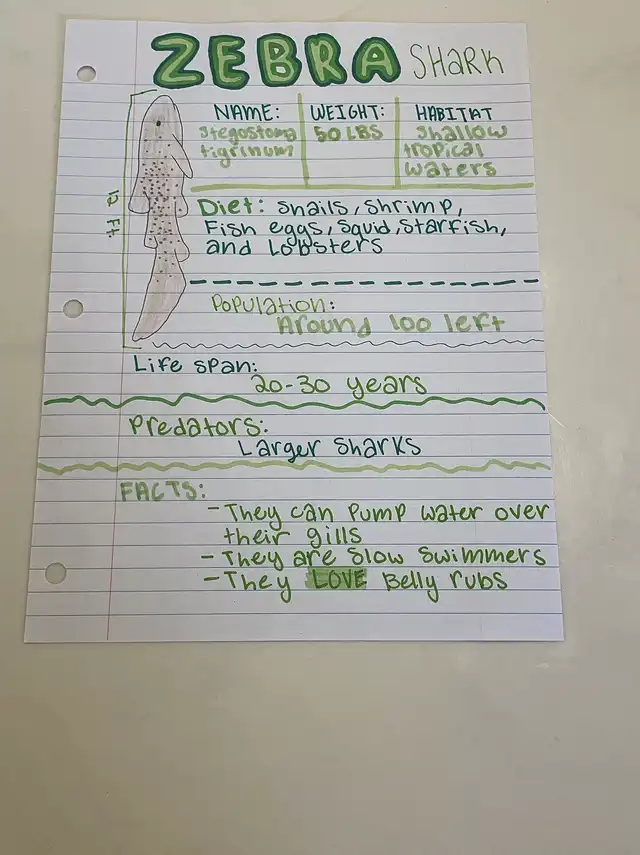 ZEBRA SHARK
NAME: WEIGHT: HABITAT
Stegostoma 50 LBS Shallow
tigrinum tropical
waters
12 Ft.
Diet: Snails, Shrimp,
Fish eggs, Squid, Starfish,
and Lobsters
Population:
Around 100 left
Life span:
20-30 years
Predators:
Larger Sharks
FACTS:
- They can Pump water over
their gills
- They are Slow Swimmers
- They LOVE Belly rubs